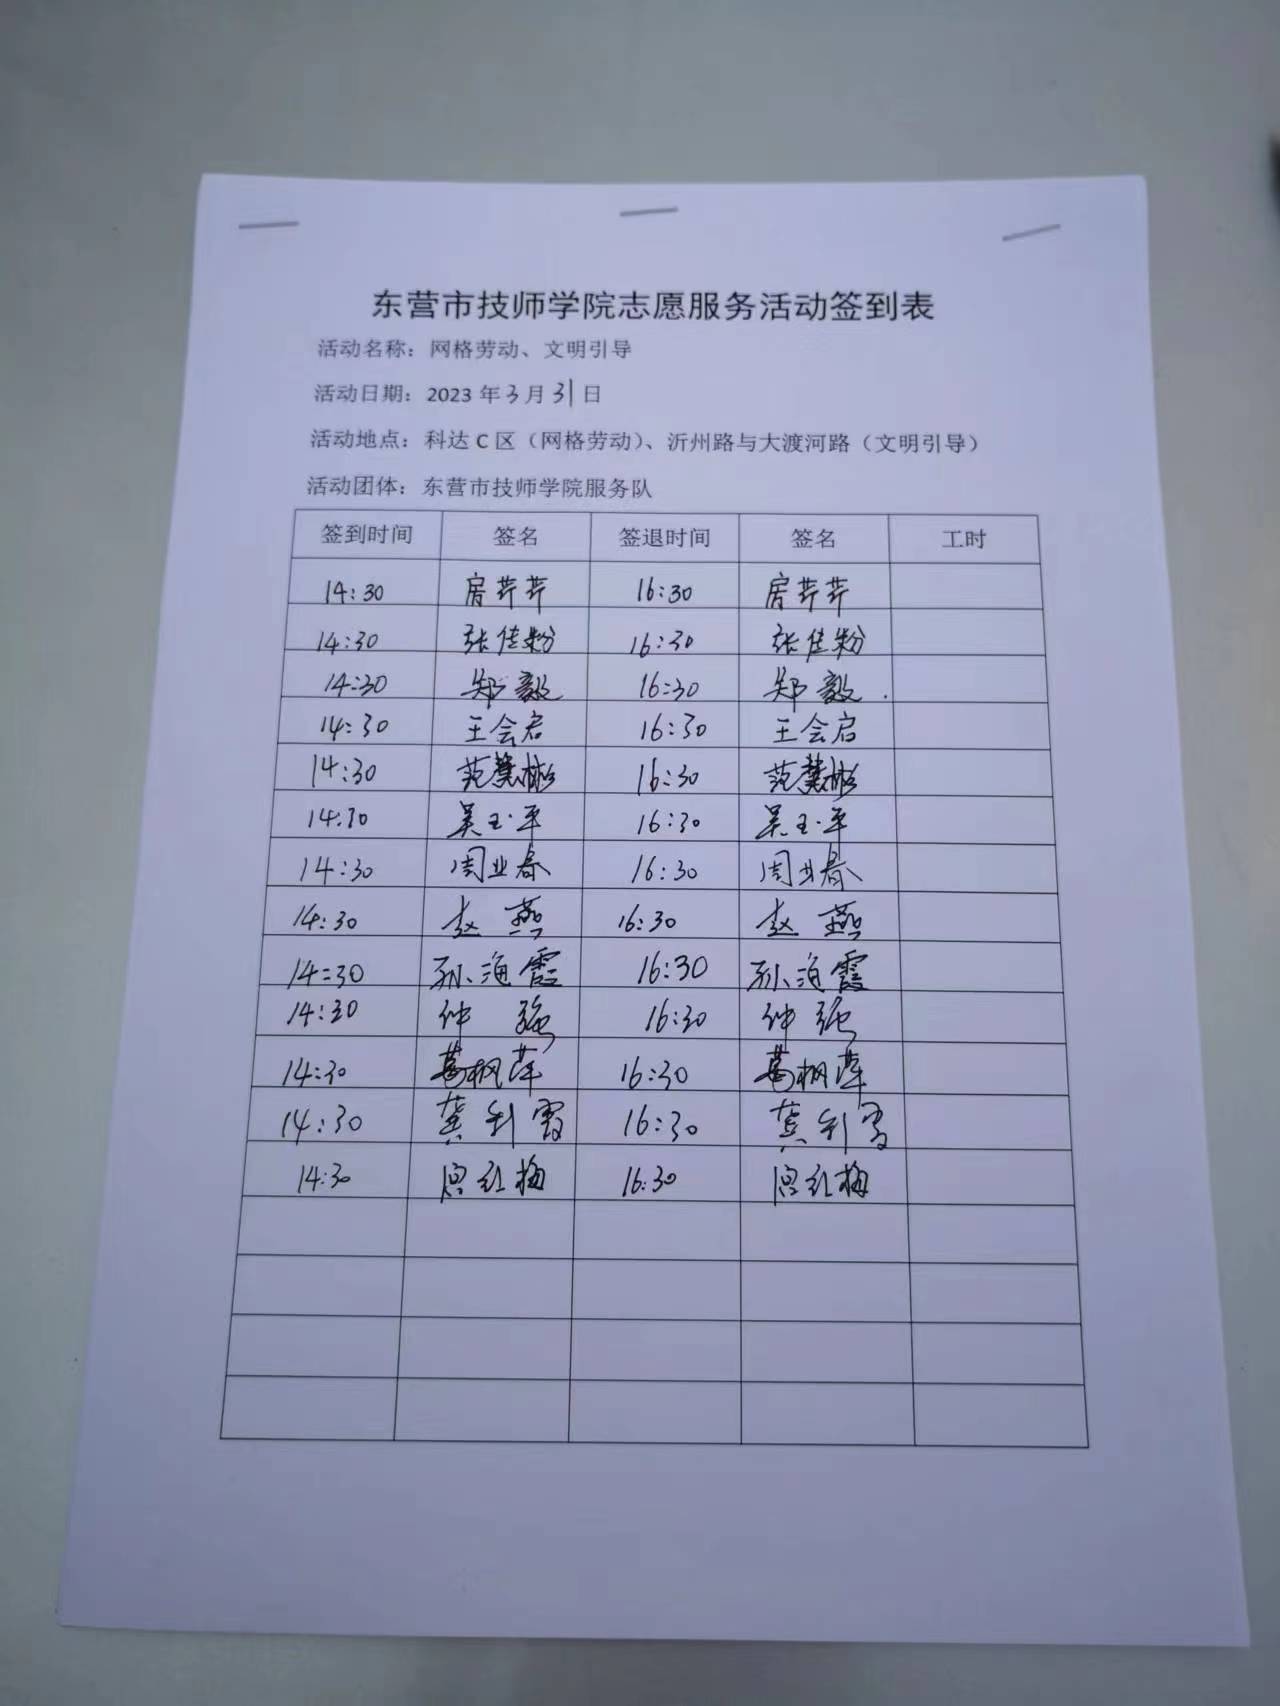 东营市技师学院志愿服务活动签到表
活动名称：网格劳动、文明引导
活动日期：2023 年 3 月 31 日
活动地点：科达 C 区（网格劳动）、沂州路与大渡河路（文明引导）
活动团体：东营市技师学院服务队
签到时间 签名 签退时间 签名 工时
14:30 房芹芹 16:30 房芹芹
14:30 张佳粉 16:30 张佳粉
14:30 郑毅 16:30 郑毅
14:30 王会启 16:30 王会启
14:30 范龚彬 16:30 范龚彬
14:30 吴玉平 16:30 吴玉平
14:30 周业春 16:30 周业春
14:30 赵燕 16:30 赵燕
14:30 孙海霞 16:30 孙海霞
14:30 钟强 16:30 钟强
14:30 葛枫萍 16:30 葛枫萍
14:30 龚利霞 16:30 龚利霞
14:30 红梅 16:30 红梅